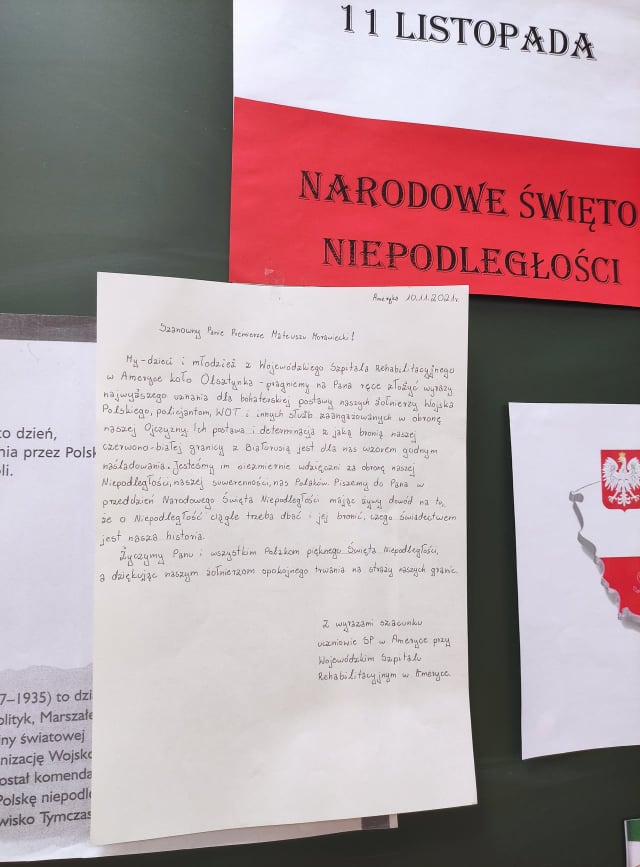 11 LISTOPADA
NARODOWE ŚWIĘTO
NIEPODLEGŁOŚCI
Ameryka 10.11.2021r.
Szanowny Panie Premierze Mateuszu Morawiecki!
My-dzieci i młodzież z Wojewódzkiego Szpitala Rehabilitacyjnego
w Ameryce koło Olsztynka - pragniemy na Pana ręce złożyć wyrazy
najwyższego uznania dla bohaterskiej postawy naszych żołnierzy Wojska
Polskiego, policjantom, WOT i innych służb zaangażowanych w obronę
naszej Ojczyzny. Ich postawa i determinacja z jaką bronią naszej
czerwono-białej granicy z Białorusią jest dla nas wzorem godnym
naśladowania. Jesteśmy im niezmiernie wdzięczni za obronę naszej
Niepodległości, naszej suwerenności, nas Polaków. Piszemy do Pana w
przeddzień Narodowego Święta Niepodległości mając żywy dowód na to,
że o Niepodległość ciągle trzeba dbać i jej bronić, czego świadectwem
jest nasza historia.
Życzymy Panu i wszystkim Polakom pięknego Święta Niepodległości,
a dziękując naszym żołnierzom spokojnego trwania na straży naszych granic.
Z wyrazami szacunku
uczniowie SP w Ameryce przy
Wojewódzkim Szpitalu
Rehabilitacyjnym w Ameryce.
to dzień,
nia przez Polsk
oli.
7–1935) to dzia
olityk, Marszałe
iny światowej
nizację Wojsko
ostał komenda
Polskę niepodle
wisko Tymczas